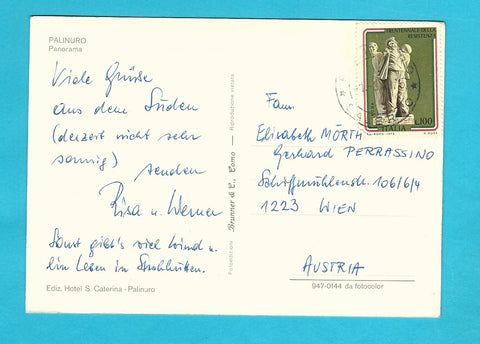 PALINURO
Panorama
Viele Grüße
aus dem Süden
(derzeit nicht sehr
sonnig)
senden
Risa u. Werner
Sonst gibt's viel Wind u.
ein Leben in Strohhütten.
Ediz. Hotel S. Caterina - Palinuro
Fotoedizioni Brunner & C., Como — Riproduzione vietata
TRENTENNALE DELLA
RESISTENZA
ITALIA L.100
Elisabeth MÖRTH
Gerhard PERRASSINO
Schiffmühlenstr. 106/6/4
1223 WIEN
AUSTRIA
947-0144 da fotocolor